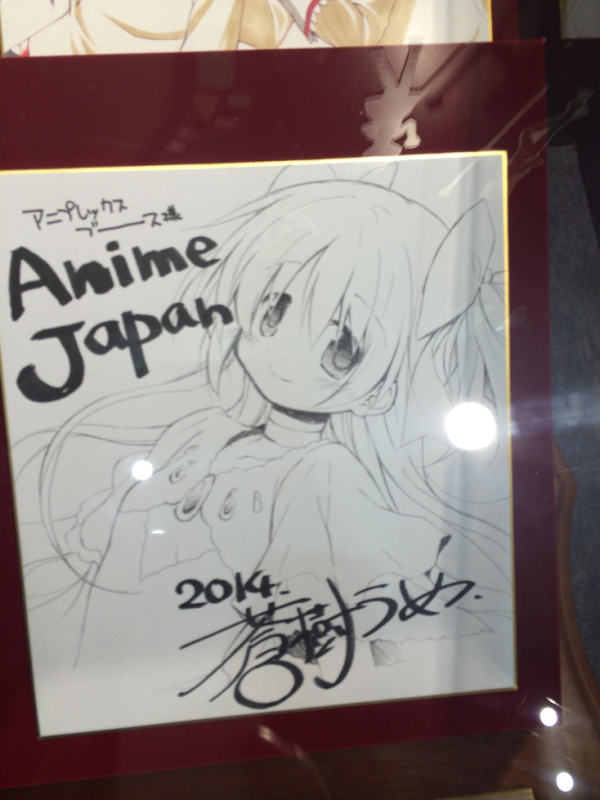 アニプレックス
ブース様
Anime
Japan
2014.
蒼樹うめ